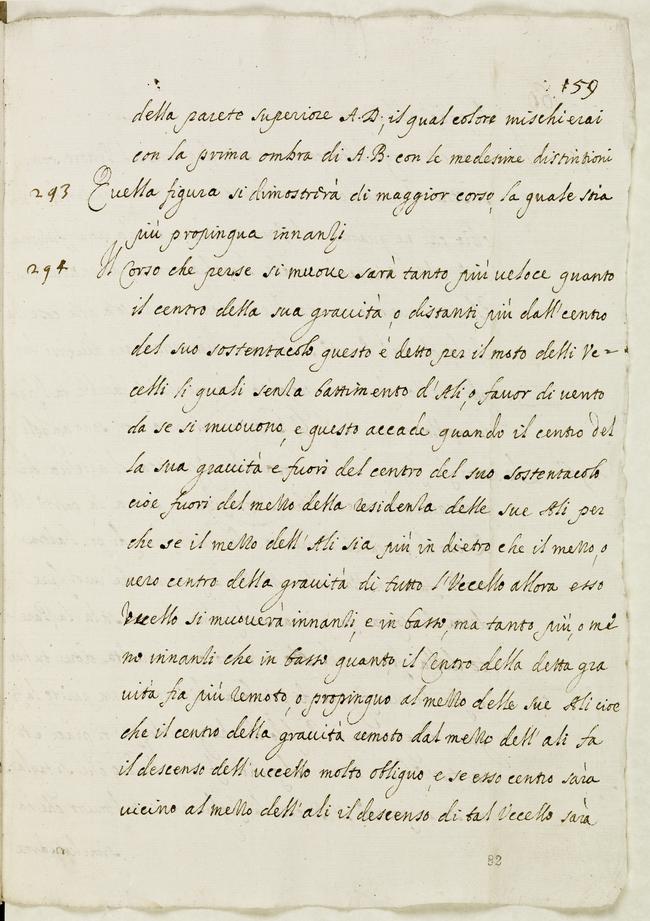 159
della parete superiore A.D; il qual colore mischierai
con la prima ombra di A.B. con le medesime distintioni
293 Quella figura si dimostrerà di maggior corso, la quale stia
più propinqua innanzi
294 Il Corso che perse si muove sarà tanto più veloce quanto
il centro della sua gravità, o distanti più dall'centro
del suo sostentacolo questo è detto per il moto delli Ve-
celli li quali senza battimento d'Ali, o favor di vento
da se si muovono, e questo accade quando il centro del
la sua gravità è fuori del centro del suo sostentacolo
cioe fuori del mezzo della residenza delle sue Ali per
che se il mezzo dell'Ali sia più in dietro che il mezzo, o
vero centro della gravità di tutto l'Vecello allora esso
Vecello si muoverà innanzi, e in basso, ma tanto più, o me
no innanzi che in basso quanto il Centro della detta gra
vità fia più remoto, o propinguo al mezzo delle sue Ali cioe
che il centro della gravità remoto dal mezzo dell'ali fa
il descenso dell'uccello molto obliguo, e se esso centro sarà
vicino al mezzo dell'ali il descenso di tal Vccello sarà
82